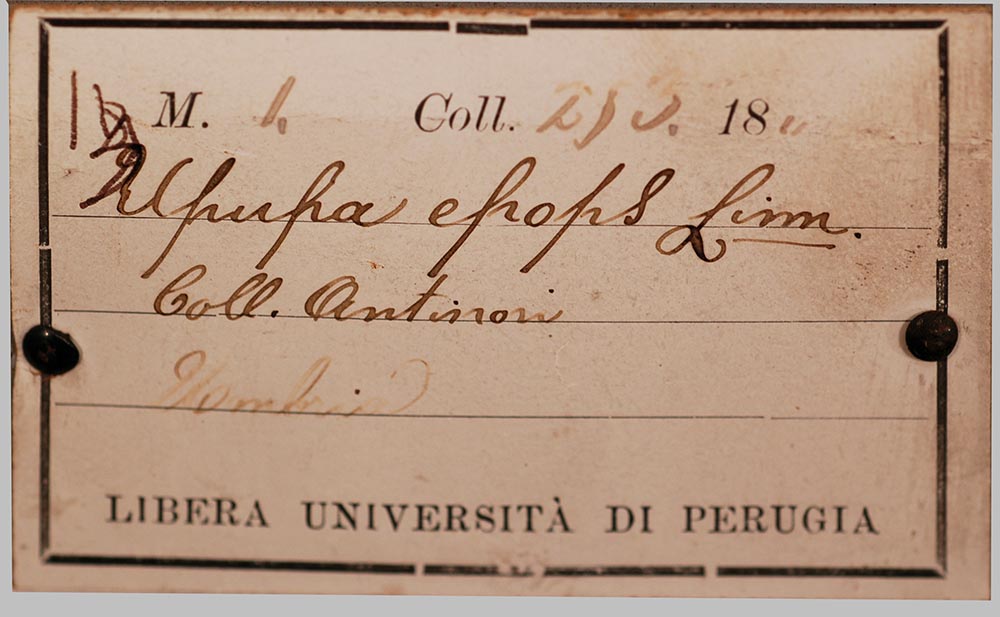 M. 1. Coll. 18 "
Upupa epops Linn.
Coll. Antinori
Umbria
LIBERA UNIVERSITÀ DI PERUGIA